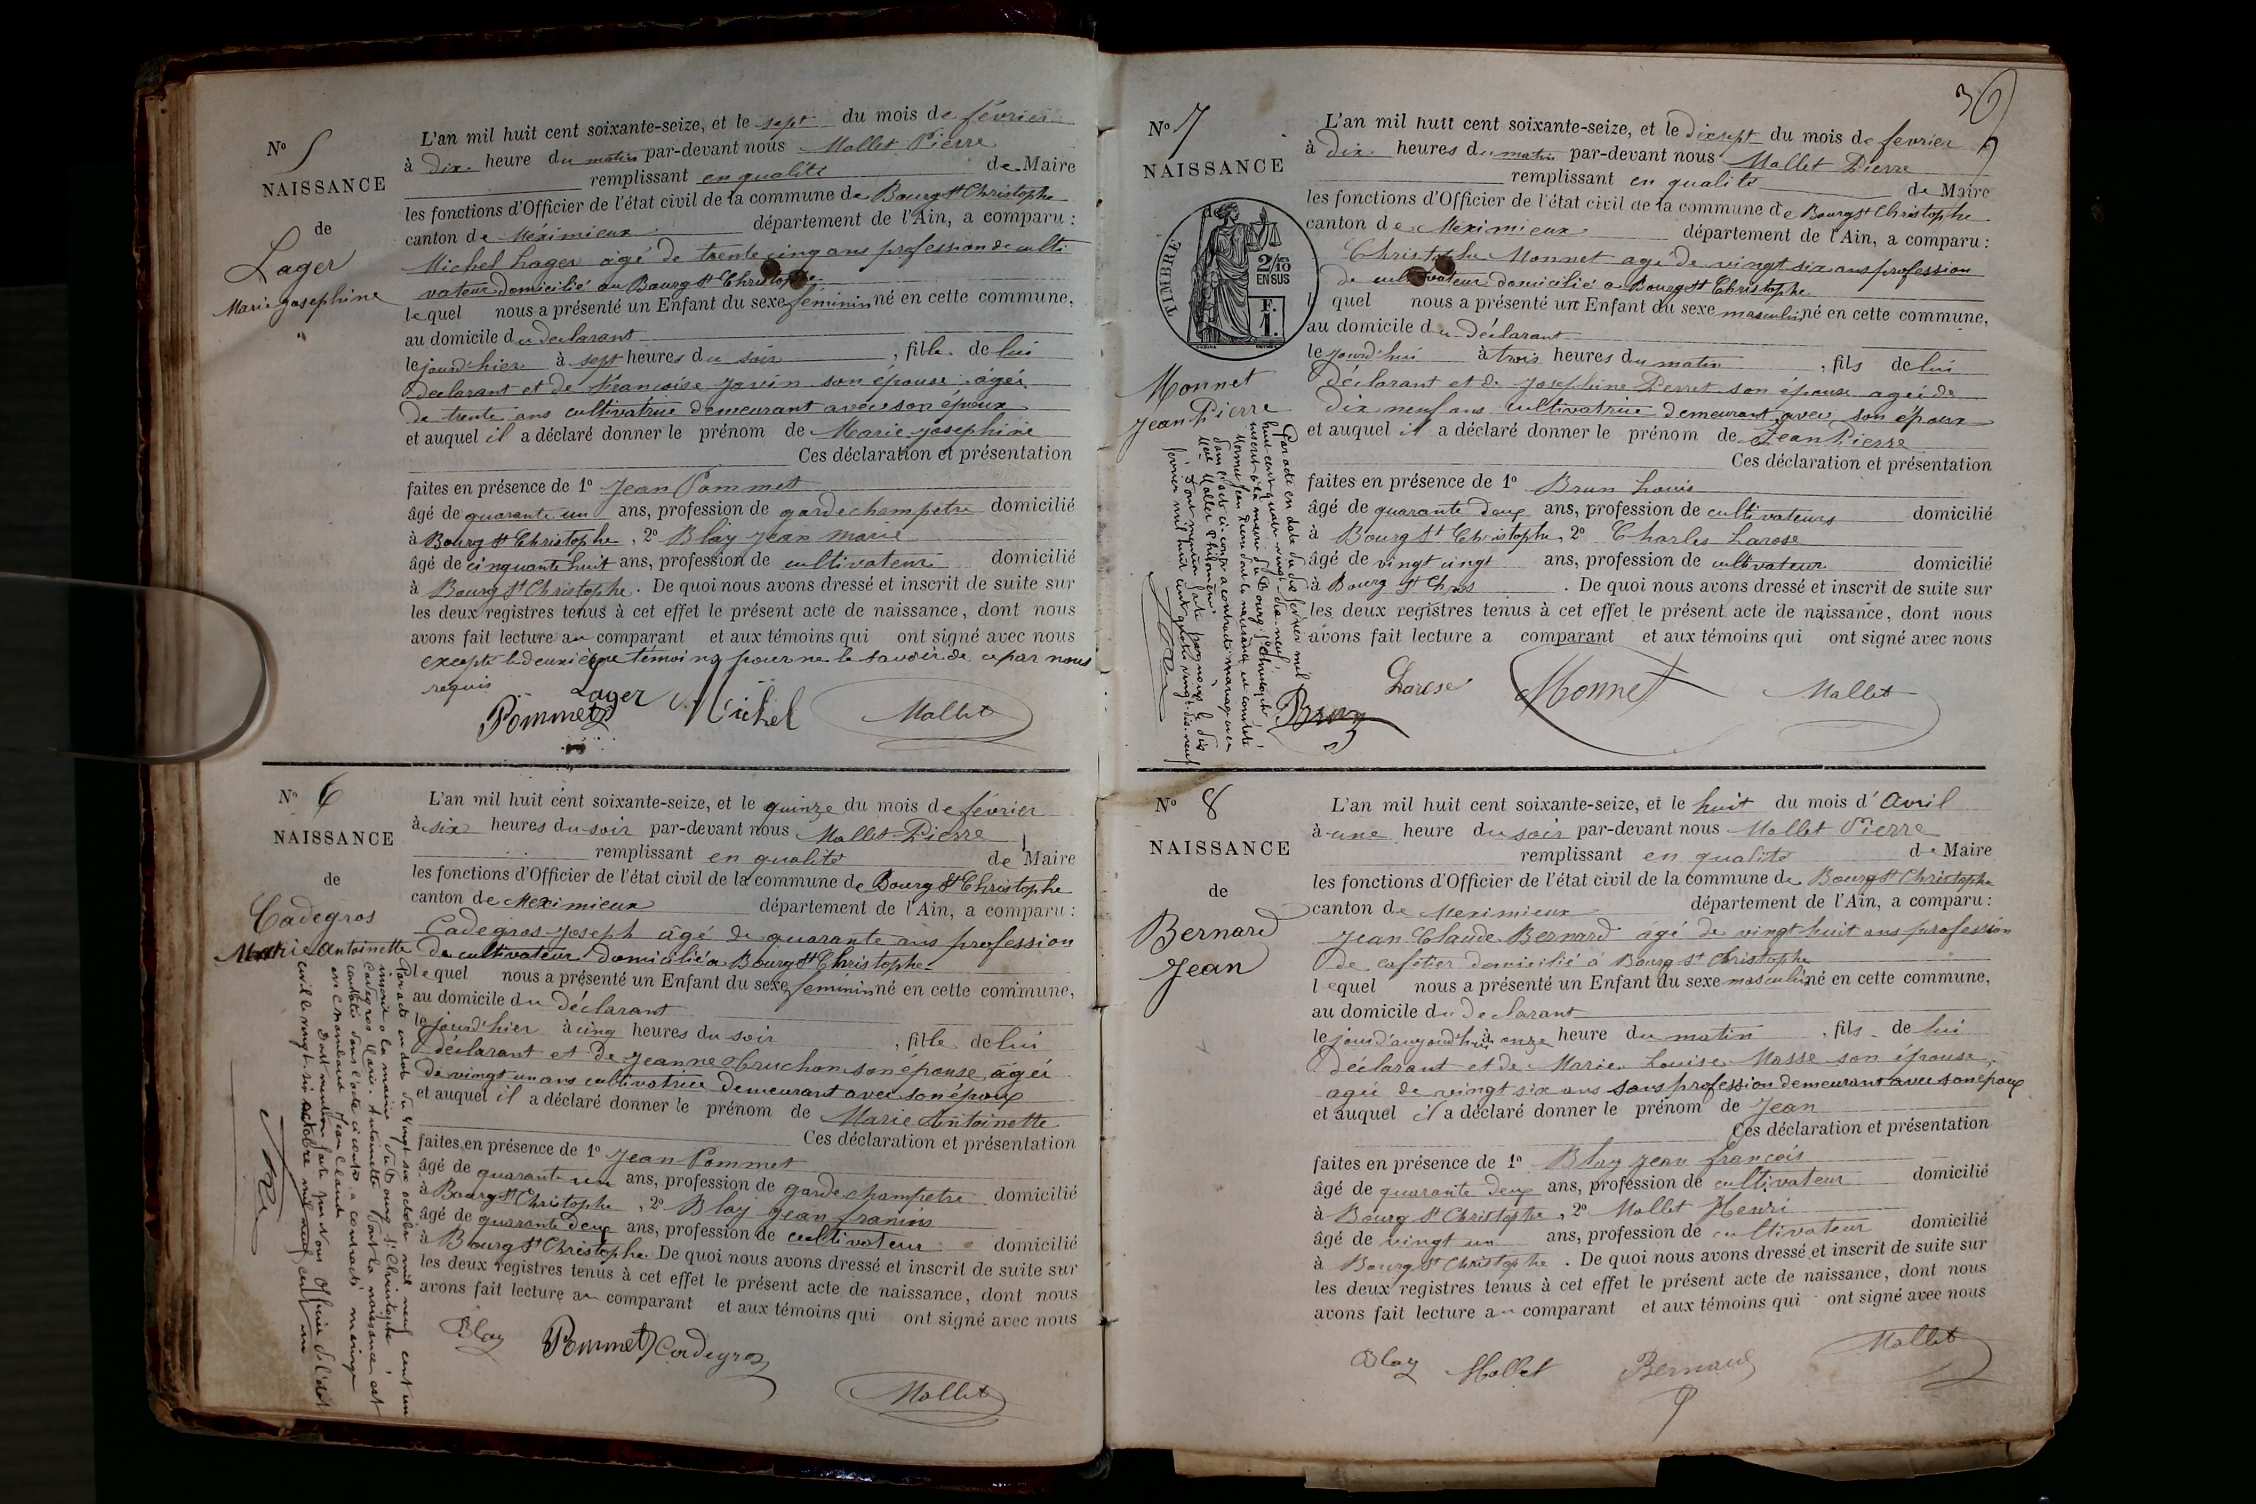 Nº 5
NAISSANCE
de
Lager
Marie Josephine
L'an mil huit cent soixante-seize, et le sept du mois de février
à dix heure du matin par-devant nous Mallet Pierre
remplissant en qualité de Maire
les fonctions d'Officier de l'état civil de la commune de Bourg St Christophe
canton de Méximieux département de l'Ain, a comparu :
Michel Lager âgé de trente cinq ans profession de culti
vateur domicilié au Bourg St Christophe
lequel nous a présenté un Enfant du sexe feminin né en cette commune,
au domicile du declarant
le jourd'hier à sept heures du soir , fille de lui
declarant et de Françoise Javin son épouse âgée
de trente ans cultivatrice demeurant avec son époux
et auquel il a déclaré donner le prénom de Marie Josephine
Ces déclaration et présentation
faites en présence de 1º Jean Pommet
âgé de quarante un ans, profession de garde champetre domicilié
à Bourg St Christophe , 2º Blay Jean Marie
âgé de cinquante huit ans, profession de cultivateur domicilié
à Bourg St Christophe . De quoi nous avons dressé et inscrit de suite sur
les deux registres tenus à cet effet le présent acte de naissance, dont nous
avons fait lecture au comparant et aux témoins qui ont signé avec nous
excepté le deuxième témoins pour ne le savoir de ce par nous
requis
Lager Michel
Pommet
Mallet
Nº 6
NAISSANCE
de
Cadegros
Marie Antoinette
L'an mil huit cent soixante-seize, et le quinze du mois de février
à six heures du soir par-devant nous Mallet Pierre
remplissant en qualité de Maire
les fonctions d'Officier de l'état civil de la commune de Bourg St Christophe
canton de Meximieux département de l'Ain, a comparu :
Cadegros Joseph âgé de quarante ans profession
de cultivateur domicilié a Bourg St Christophe
lequel nous a présenté un Enfant du sexe feminin né en cette commune,
au domicile du déclarant
le jourd'hier à cinq heures du soir , fille de lui
déclarant et de Jeanne Cruchon son épouse âgée
de vingt un ans cultivatrice demeurant avec son époux
et auquel il a déclaré donner le prénom de Marie Antoinette
Ces déclaration et présentation
faites en présence de 1º Jean Pommet
âgé de quarante un ans, profession de garde champetre domicilié
à Bourg St Christophe , 2º Blay Jean françois
âgé de quarante deux ans, profession de cultivateur domicilié
à Bourg St Christophe. De quoi nous avons dressé et inscrit de suite sur
les deux registres tenus à cet effet le présent acte de naissance, dont nous
avons fait lecture au comparant et aux témoins qui ont signé avec nous
Blay Pommet Cadegros
Mallet
Par acte en date du vingt six octobre mil neuf cent un
inscrit a la mairie du Bourg St Christophe,
Cadegros Marie Antoinette dont la naissance est
constatée dans l'acte ci contre a contracté mariage
avec Jean Claude
Dont mention faite par Nous Officier de l'état
civil le vingt-six octobre mil neuf cent un
36
Nº 7
NAISSANCE
TIMBRE
2/10
EN SUS
F.
1.
Monnet
Jean Pierre
L'an mil huit cent soixante-seize, et le dix sept du mois de fevrier
à dix heures du matin par-devant nous Mallet Pierre
remplissant en qualité de Maire
les fonctions d'Officier de l'état civil de la commune de Bourg St Christophe
canton de Meximieux département de l'Ain, a comparu :
Christophe Monnet age de vingt six ans profession
de cultivateur domicilié a Bourg St Christophe
l quel nous a présenté un Enfant du sexe masculin né en cette commune,
au domicile du déclarant
le jourd'hui à trois heures du matin , fils de lui
déclarant et de Josephine Perret son épouse agée de
dix neuf ans cultivatrice demeurant avec son époux
et auquel il a déclaré donner le prénom de Jean Pierre
Ces déclaration et présentation
faites en présence de 1º Brun Louis
âgé de quarante deux ans, profession de cultivateurs domicilié
à Bourg St Christophe, 2º Charles Larose
âgé de vingt cinq ans, profession de cultivateur domicilié
à Bourg St Chris . De quoi nous avons dressé et inscrit de suite sur
les deux registres tenus à cet effet le présent acte de naissance, dont nous
avons fait lecture a comparant et aux témoins qui ont signé avec nous
Larose Monnet Mallet
Brun
Par acte en date du dix février mil
huit cent quatre-vingt-dix-neuf,
inscrit à la mairie du Bourg St Christophe,
Monnet Jean Pierre dont la naissance est constatée
dans l'acte ci-contre a contracté mariage avec
Melle Mallet Philomène.
Dont mention faite par nous le dix
février mil huit cent quatre vingt-dix-neuf
Nº 8
NAISSANCE
de
Bernard
Jean
L'an mil huit cent soixante-seize, et le huit du mois d'Avril
à une heure du soir par-devant nous Mallet Pierre
remplissant en qualité de Maire
les fonctions d'Officier de l'état civil de la commune de Bourg St Christophe
canton de Meximieux département de l'Ain, a comparu :
Jean Claude Bernard âgé de vingt huit ans profession
de cafetier domicilié à Bourg St Christophe
lequel nous a présenté un Enfant du sexe masculin né en cette commune,
au domicile du declarant
le jourd'aujourd'hui à onze heure du matin , fils de lui
déclarant et de Marie Louise Masse son épouse
agée de vingt six ans sans profession demeurant avec son époux
et auquel il a déclaré donner le prénom de Jean
Ces déclaration et présentation
faites en présence de 1º Blay Jean françois
âgé de quarante deux ans, profession de cultivateur domicilié
à Bourg St Christophe, 2º Mallet Henri
âgé de vingt un ans, profession de cultivateur domicilié
à Bourg St Christophe . De quoi nous avons dressé et inscrit de suite sur
les deux registres tenus à cet effet le présent acte de naissance, dont nous
avons fait lecture au comparant et aux témoins qui ont signé avec nous
Blay Mallet Bernard Mallet